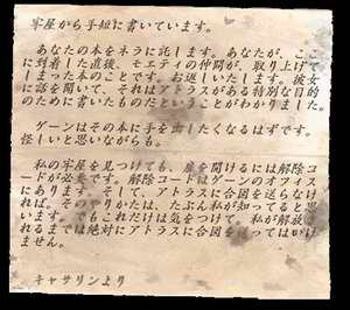 牢屋から手短に書いています。
あなたの本をネラに託します。あなたが、ここ
に到着した直後、モエティの仲間が、取り上げて
しまった本のことです。お返しいたします。彼女
に話を聞いて、それはアトラスがある特別な目的
のために書いたものだということがわかりました。
ゲーンはその本に手を出したくなるはずです。
怪しいと思いながらも。
私の牢屋を見つけても、扉を開けるには解除コ
ードが必要です。解除コードはゲーンのオフィス
にあります。そして、アトラスに合図を送らなけ
れば。そのやりかたは、たぶん私が知ってると思
います。でもこれだけは気をつけて。私が解放さ
れるまでは絶対にアトラスに合図を送ってはいけ
ません。
キャサリンより